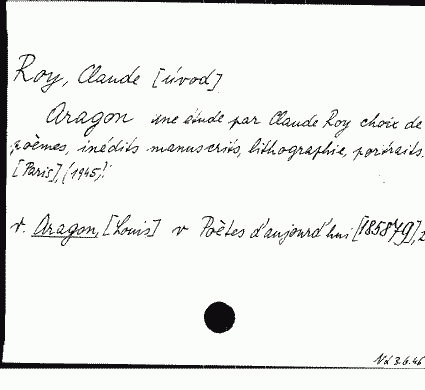 Roy, Claude [úvod]
Aragon une étude par Claude Roy choix de
poèmes, inédits manuscrits, lithographie, portraits.
[Paris], (1945).
v. Aragon, [Louis] v Poètes d'aujourd'hui [185879], 2
Vd 3.6.46